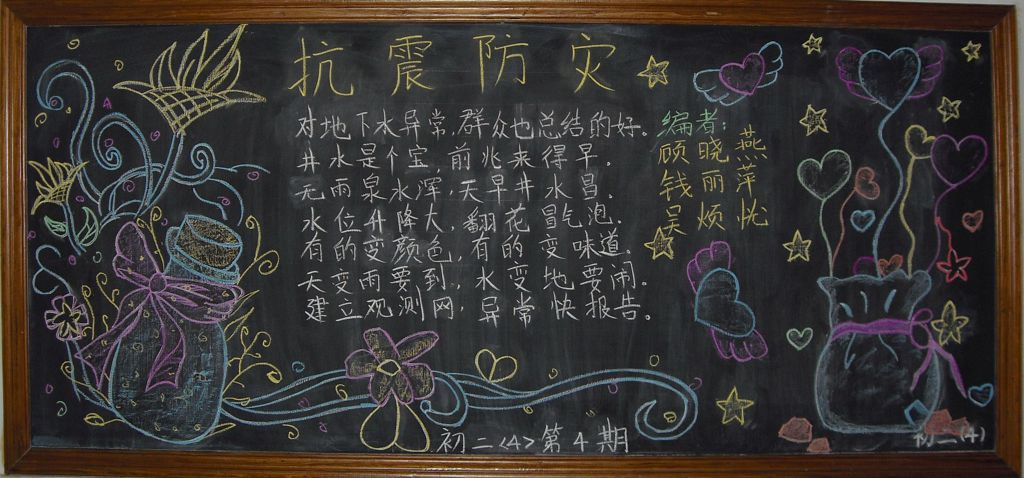 抗震防灾
对地下水异常,群众也总结的好。
井水是个宝,前兆来得早。
无雨泉水浑,天旱井水冒。
水位升降大,翻花冒气泡。
有的变颜色,有的变味道。
天变雨要到,水变地要闹。
建立观测网,异常快报告。
编者:
顾晓燕
钱丽萍
吴烦忧
初二<4>第4期
初二(4)